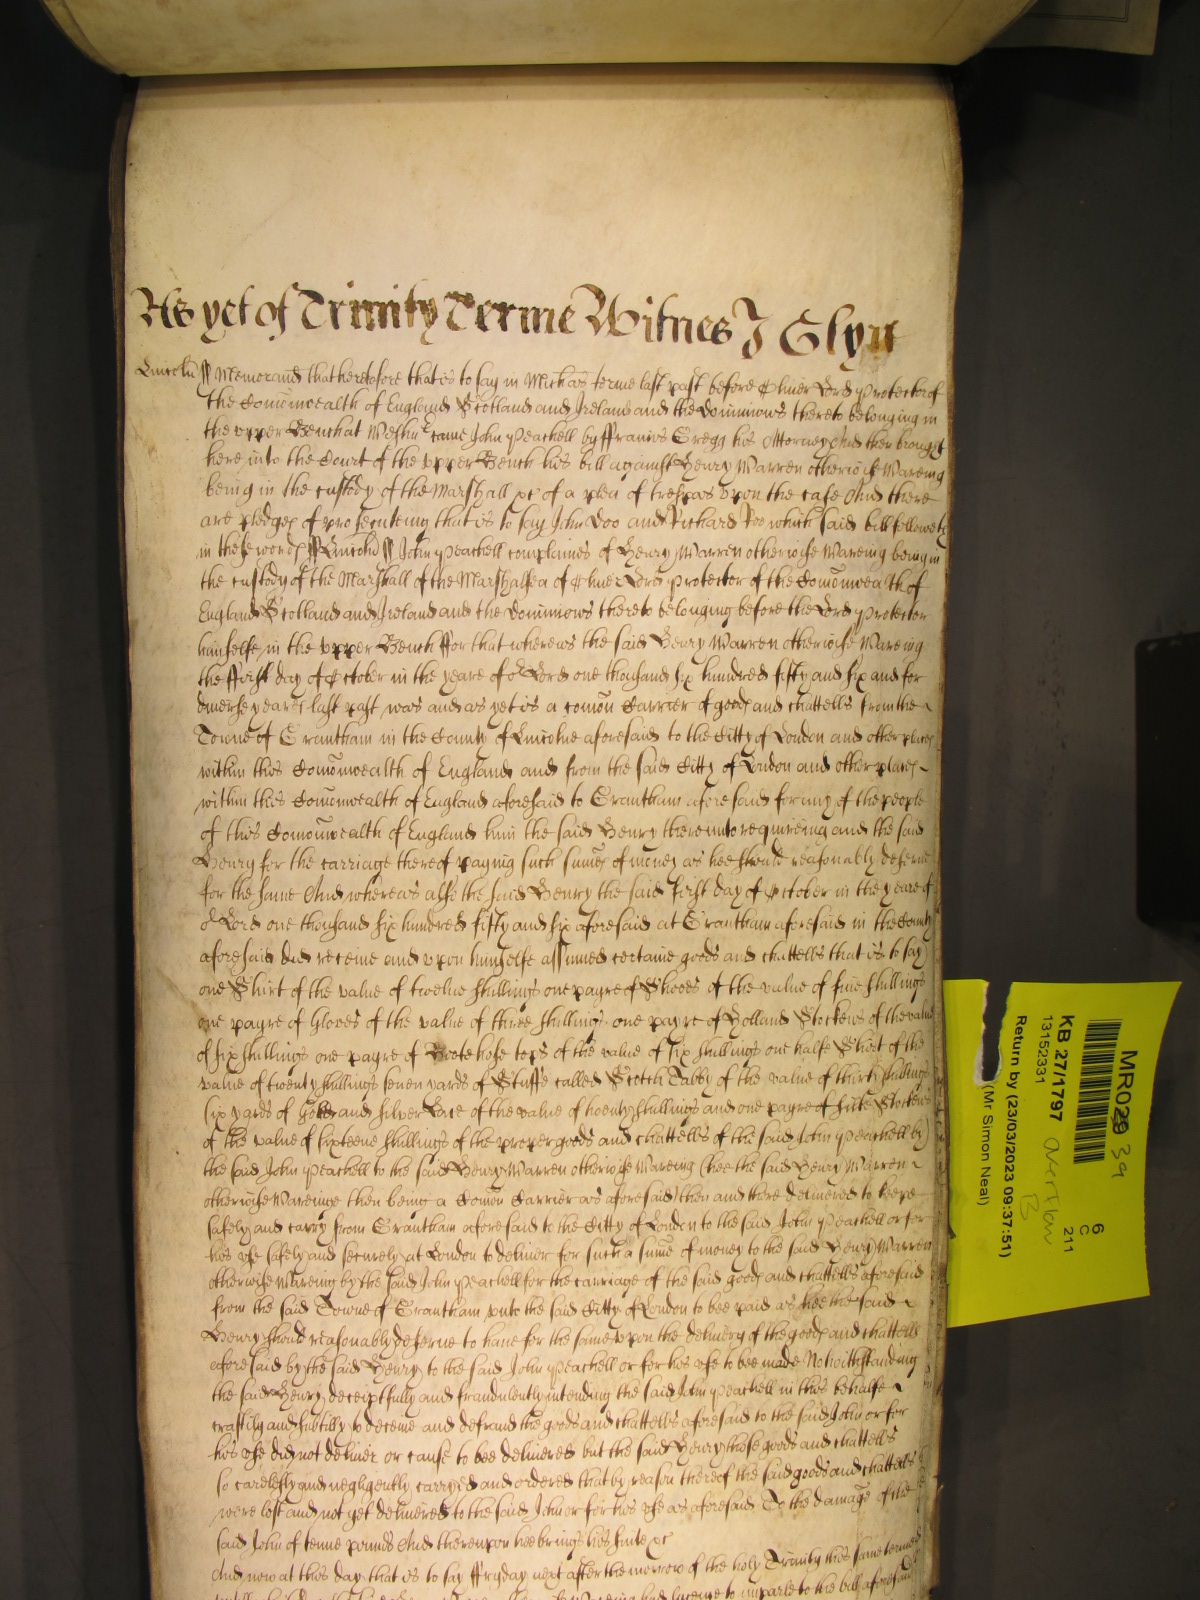 As yet of Trinity Terme Witnes J Glyn
Lincoln ss Memorand that heretofore that is to say in Mich'as terme last past before Oliver Lord Protector of
the Com̄onwealth of England Scotland and Ireland and the Dominions thereto belonging in
the upper Bench at Westm̄r came John Peachell by ffrancis Gregg his Attorney And then brought
here into the Court of the upper Bench his bill against Henry Warren otherwise Wareing
being in the custody of the Marshall &c of a plea of trespas upon the case And there
are pledges of prosecuteing that is to say John Doo and Richard Roo which said bill followeth
in these words ss Lincoln ss John Peachell complaines of Henry Warren otherwise Wareing being in
the custody of the Marshall of the Marshalsea of Oliver Lord Protector of the Com̄onwealth of
England Scotland and Ireland and the Dominions thereto belonging before the Lord Protector
himselfe in the upper Bench ffor that whereas the said Henry Warren otherwise Wareing
the ffirst day of October in the yeare of or Lord one thousand six hundred fifty and six and for
diverse yeares last past was and as yet is a com̄on Carrier of goods and chattells from the
Towne of Grantham in the County of Lincolne aforesaid to the Citty of London and other places
within this Com̄onwealth of England and from the said Citty of London and other places
within this Com̄onwealth of England aforesaid to Grantham aforesaid for any of the people
of this Com̄onwealth of England him the said Henry thereunto requireing and the said
Henry for the carriage thereof paying such sum̄es of money as hee should reasonably deserve
for the same And whereas alsoe the said Henry the said first day of October in the yeare of
or Lord one thousand six hundred fifty and six aforesaid at Grantham aforesaid in the County
aforesaid did receive and upon himselfe assumed certaine goods and chattells that is to say
one Shirt of the value of twelve shillings one payre of Shooes of the value of five shillings
one payre of Gloves of the value of three shillings one payre of Holland Stockens of the value
of six shillings one payre of Boote hose tops of the value of six shillings one halfe Shirt of the
value of twenty shillings seven yards of Stuffe called Scotch Tabby of the value of thirty shillings
six yards of Gold and silver Lace of the value of twenty shillings and one payre of silke Stockens
of the value of sixteene shillings of the proper goods and chattells of the said John Peachell by
the said John Peachell to the said Henry Warren otherwise Wareing (hee the said Henry Warren
otherwise Wareinge then being a Com̄on Carrier as aforesaid) then and there delivered to keepe
safely and carry from Grantham aforesaid to the Citty of London to the said John Peachell or for
his use safely and securely at London to deliver for such a sum̄e of money to the said Henry Warren
otherwise Wareing by the said John Peachell for the carriage of the said goods and chattells aforesaid
from the said Towne of Grantham unto the said Citty of London to bee paid as hee the said
Henry should reasonably deserve to have for the same upon the delivery of the goods and chattells
aforesaid by the said Henry to the said John Peachell or for his use to bee made Notwithstanding
the said Henry deceiptfully and fraudulently intending the said John Peachell in this behalfe
craftily and subtilly to deceive and defraud the goods and chattells aforesaid to the said John or for
his use did not deliver or cause to bee delivered but the said Henry those goods and chattells
so carelesly and negligently carryed and ordered that by reason thereof the said goods and chattells
were lost and not yet delivered to the said John or for his use as aforesaid To the damage of the
said John of tenne pounds And thereupon hee brings his suite &c
And now at this day that is to say ffryday next after the morrow of the holy Trinity this same terme
Wareing had licence to imparle to the bill aforesaid
MR029 39
6
C
211
KB 27/1797
13152331
overflow
B
Return by (23/03/2023 09:37:51)
(Mr Simon Neal)